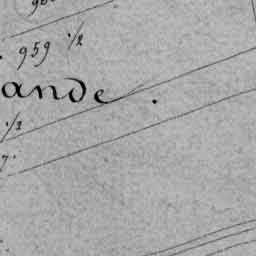 959 1/2
ande.
1/2
7.